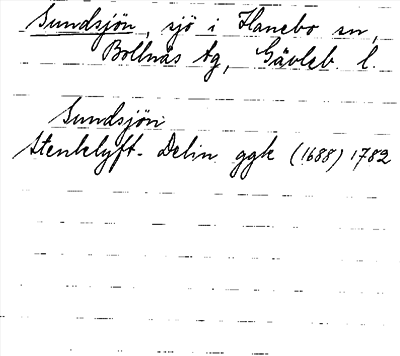 Sundsjön, sjö i Hanebo sn,
Bollnäs tg, Gävleb. l.
Sundsjön
Stenklyft. Delin ggk (1688) 1782